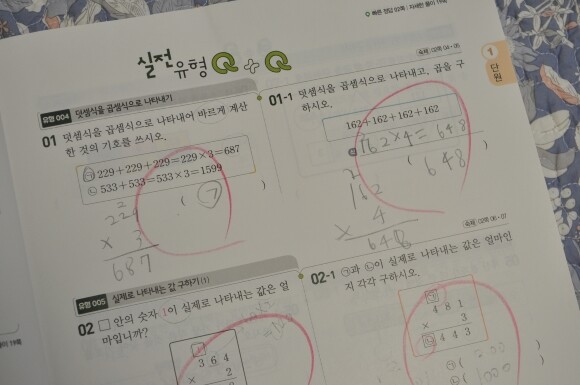 빠른 정답 02쪽 | 자세한 풀이 19쪽
실전 유형 Q+Q
1
단원
유형 004 덧셈식을 곱셈식으로 나타내기
01 덧셈식을 곱셈식으로 나타내어 바르게 계산
한 것의 기호를 쓰시오.
㉠ 229+229+229=229×3=687
㉡ 533+533=533×3=1599
( ㉠ )
2
229
× 3
687
숙제 | 02쪽 04·05
01-1 덧셈식을 곱셈식으로 나타내고, 곱을 구
하시오.
162+162+162+162
162×4=648
( 648 )
2
162
× 4
648
유형 005 실제로 나타내는 값 구하기 (1)
02 □ 안의 숫자 1이 실제로 나타내는 값은 얼
마입니까?
1
3 6 4
× 2
숙제 | 02쪽 06·07
02-1 ㉠과 ㉡이 실제로 나타내는 값은 얼마인
지 각각 구하시오.
㉠
4 8 1
× 3
㉡ 4 4 3
㉠ (
㉡ ( 1000